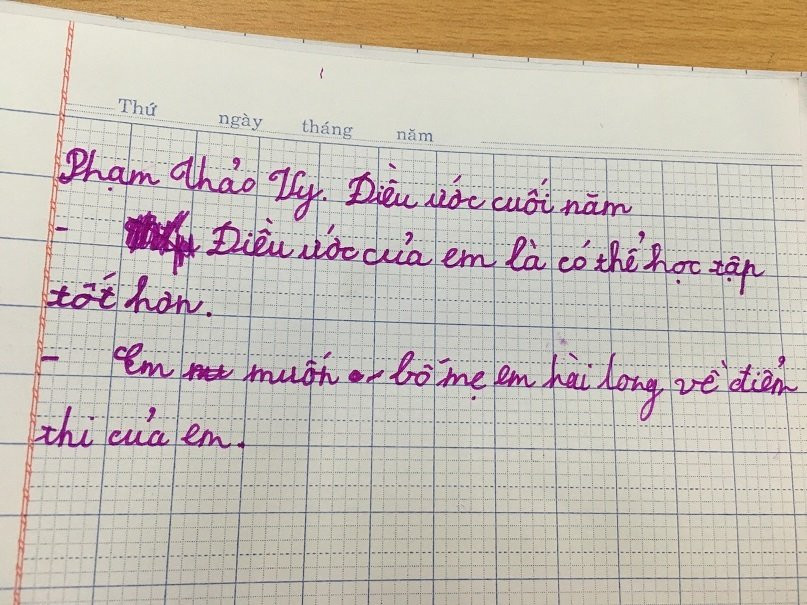 Thứ ngày tháng năm
Phạm Thảo Vy. Điều ước cuối năm
- Điều ước của em là có thể học tập
tốt hơn.
- Em muốn bố mẹ em hài lòng về điểm
thi của em.